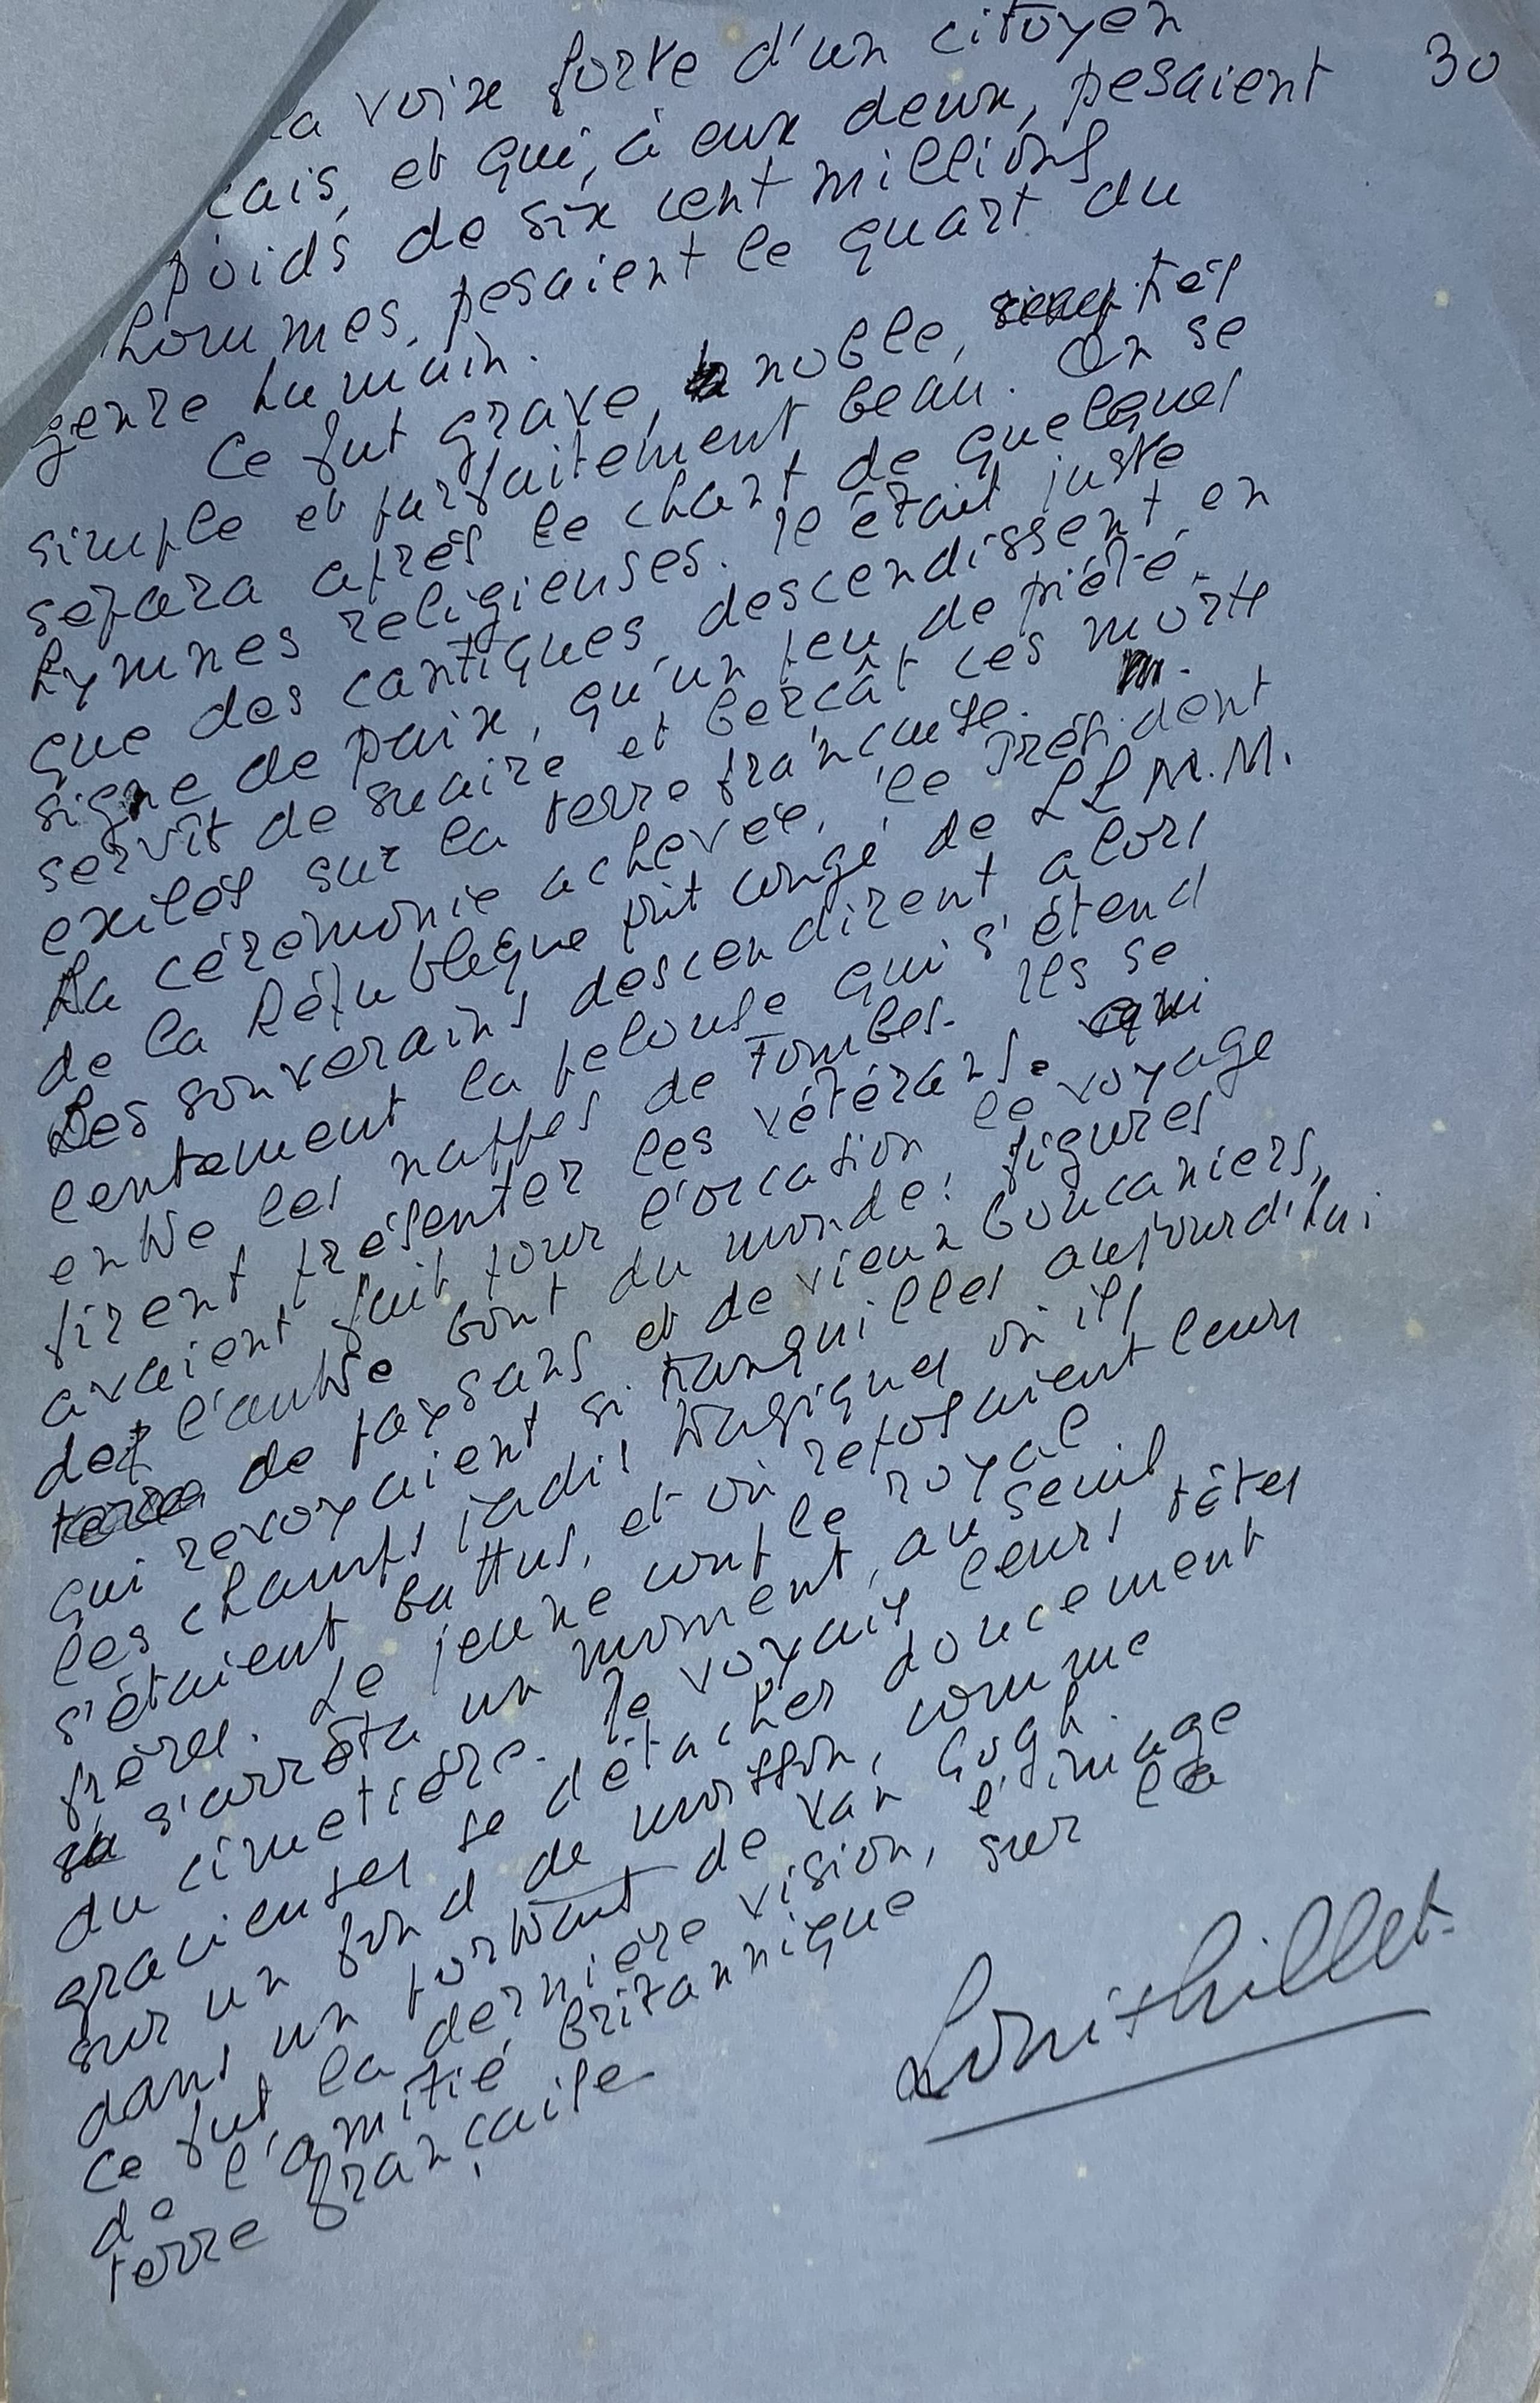 30
la voix forte d'un citoyen
cais, et qui, à eux deux, pesaient
poids de six cent millions
hommes, pesaient le quart du
genre humain.
Ce fut grave, noble, très
simple et parfaitement beau. On se
sépara après le chant de quelques
hymnes religieuses. Il était juste
que des cantiques descendissent en
signe de paix, qu'un peu de piété
servît de suaire et berçât ces morts
exilés sur la terre française.
La cérémonie achevée, le Président
de la République prit congé de LL M.M.
Les souverains descendirent alors
lentement la pelouse qui s'étend
entre les nappes de tombes. Ils se
firent présenter les vétérans qui
avaient fait pour l'occasion le voyage
de l'autre bout du monde: figures
de paysans et de vieux boucaniers,
qui revoyaient si tranquilles aujourd'hui
les champs jadis tragiques où ils
s'étaient battus, et où reposaient leurs
frères. Le jeune couple royal
s'arrêta un moment, au seuil
du cimetière. Je voyais leurs têtes
gracieuses se détacher doucement
sur un fond de moisson, comme
dans un portrait de Van Gogh.
Ce fut la dernière vision, l'image
de l'amitié britannique sur la
terre française
Louis Gillet